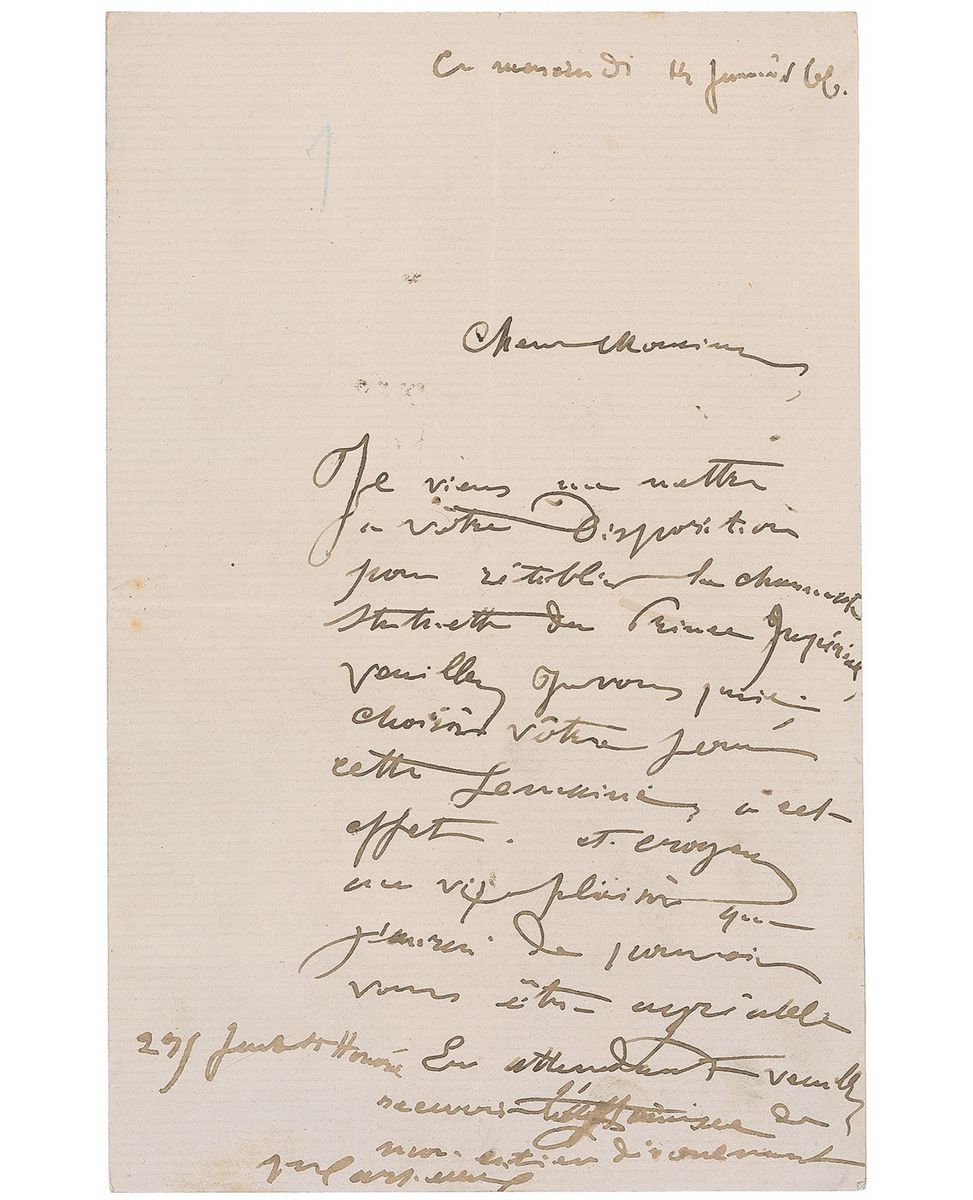 Ce mercredi 14 Janvier 66.
Cher Monsieur,
Je viens me mettre
a vôtre Disposition
pour rétablir la charmante
Statuette du Prince Impérial
veuillez Je vous prie
choisir vôtre jour
cette Semaine, à cet
effet. et croyez
au vif plaisir que
j'aurai de pouvoir
vous être agréable
En attendant veuillez
recevoir de
mon entier dévouement
Faub St Honoré